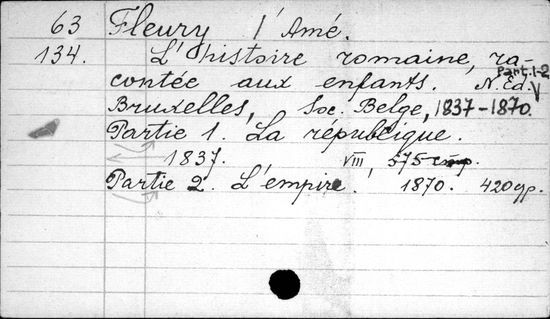 63 Fleury l'Amé.
134. L'histoire romaine, ra-
contée aux enfants. Part. 1-2 N. Ed.
Bruxelles, Soc. Belge, 1837-1870.
Partie 1. La république.
1837. VIII, 575 p.
Partie 2. L'empire. 1870. 420 pp.